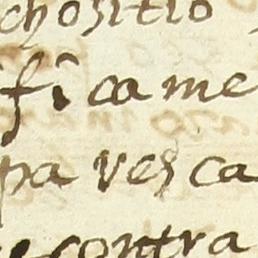 chositio
fica me
pa vesca
contra